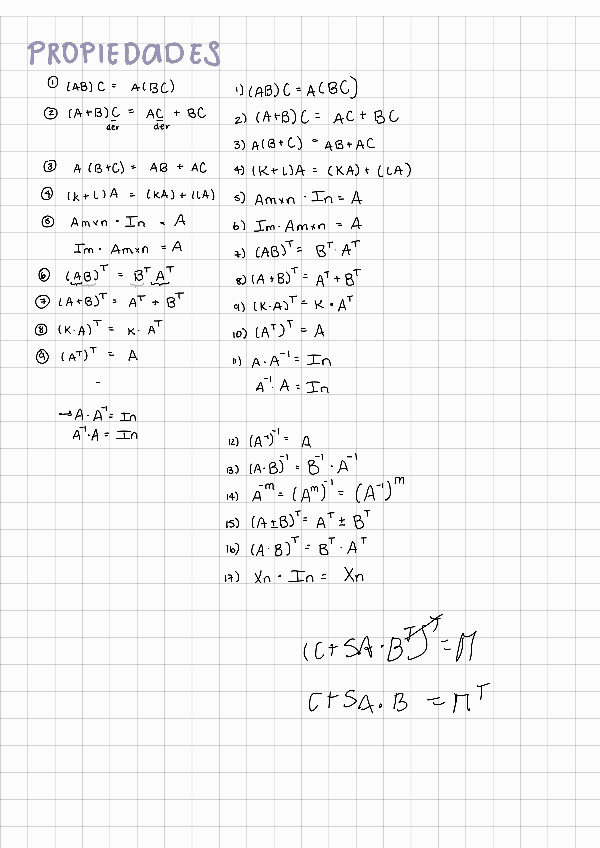 PROPIEDADES
① (AB)C = A(BC)
② (A+B)C = AC + BC
der der
③ A(B+C) = AB + AC
④ (K+L)A = (KA)+(LA)
⑤ Amxn · In = A
Im · Amxn = A
⑥ (AB)ᵀ = BᵀAᵀ
⑦ (A+B)ᵀ = Aᵀ + Bᵀ
⑧ (K·A)ᵀ = K·Aᵀ
⑨ (Aᵀ)ᵀ = A
-
→ A·A⁻¹ = In
A⁻¹·A = In
1) (AB)C = A(BC)
2) (A+B)C = AC + BC
3) A(B+C) = AB+AC
4) (K+L)A = (KA)+(LA)
5) Amxn · In = A
6) Im · Amxn = A
7) (AB)ᵀ = Bᵀ·Aᵀ
8) (A+B)ᵀ = Aᵀ+Bᵀ
9) (K·A)ᵀ = K·Aᵀ
10) (Aᵀ)ᵀ = A
11) A·A⁻¹ = In
A⁻¹·A = In
12) (A⁻¹)⁻¹ = A
13) (A·B)⁻¹ = B⁻¹·A⁻¹
14) A⁻ᵐ = (Aᵐ)⁻¹ = (A⁻¹)ᵐ
15) (A±B)ᵀ = Aᵀ ± Bᵀ
16) (A·B)ᵀ = Bᵀ·Aᵀ
17) Xn · In = Xn
(C+5A·Bᵀ)ᵀ = M
C+5A·B = Mᵀ